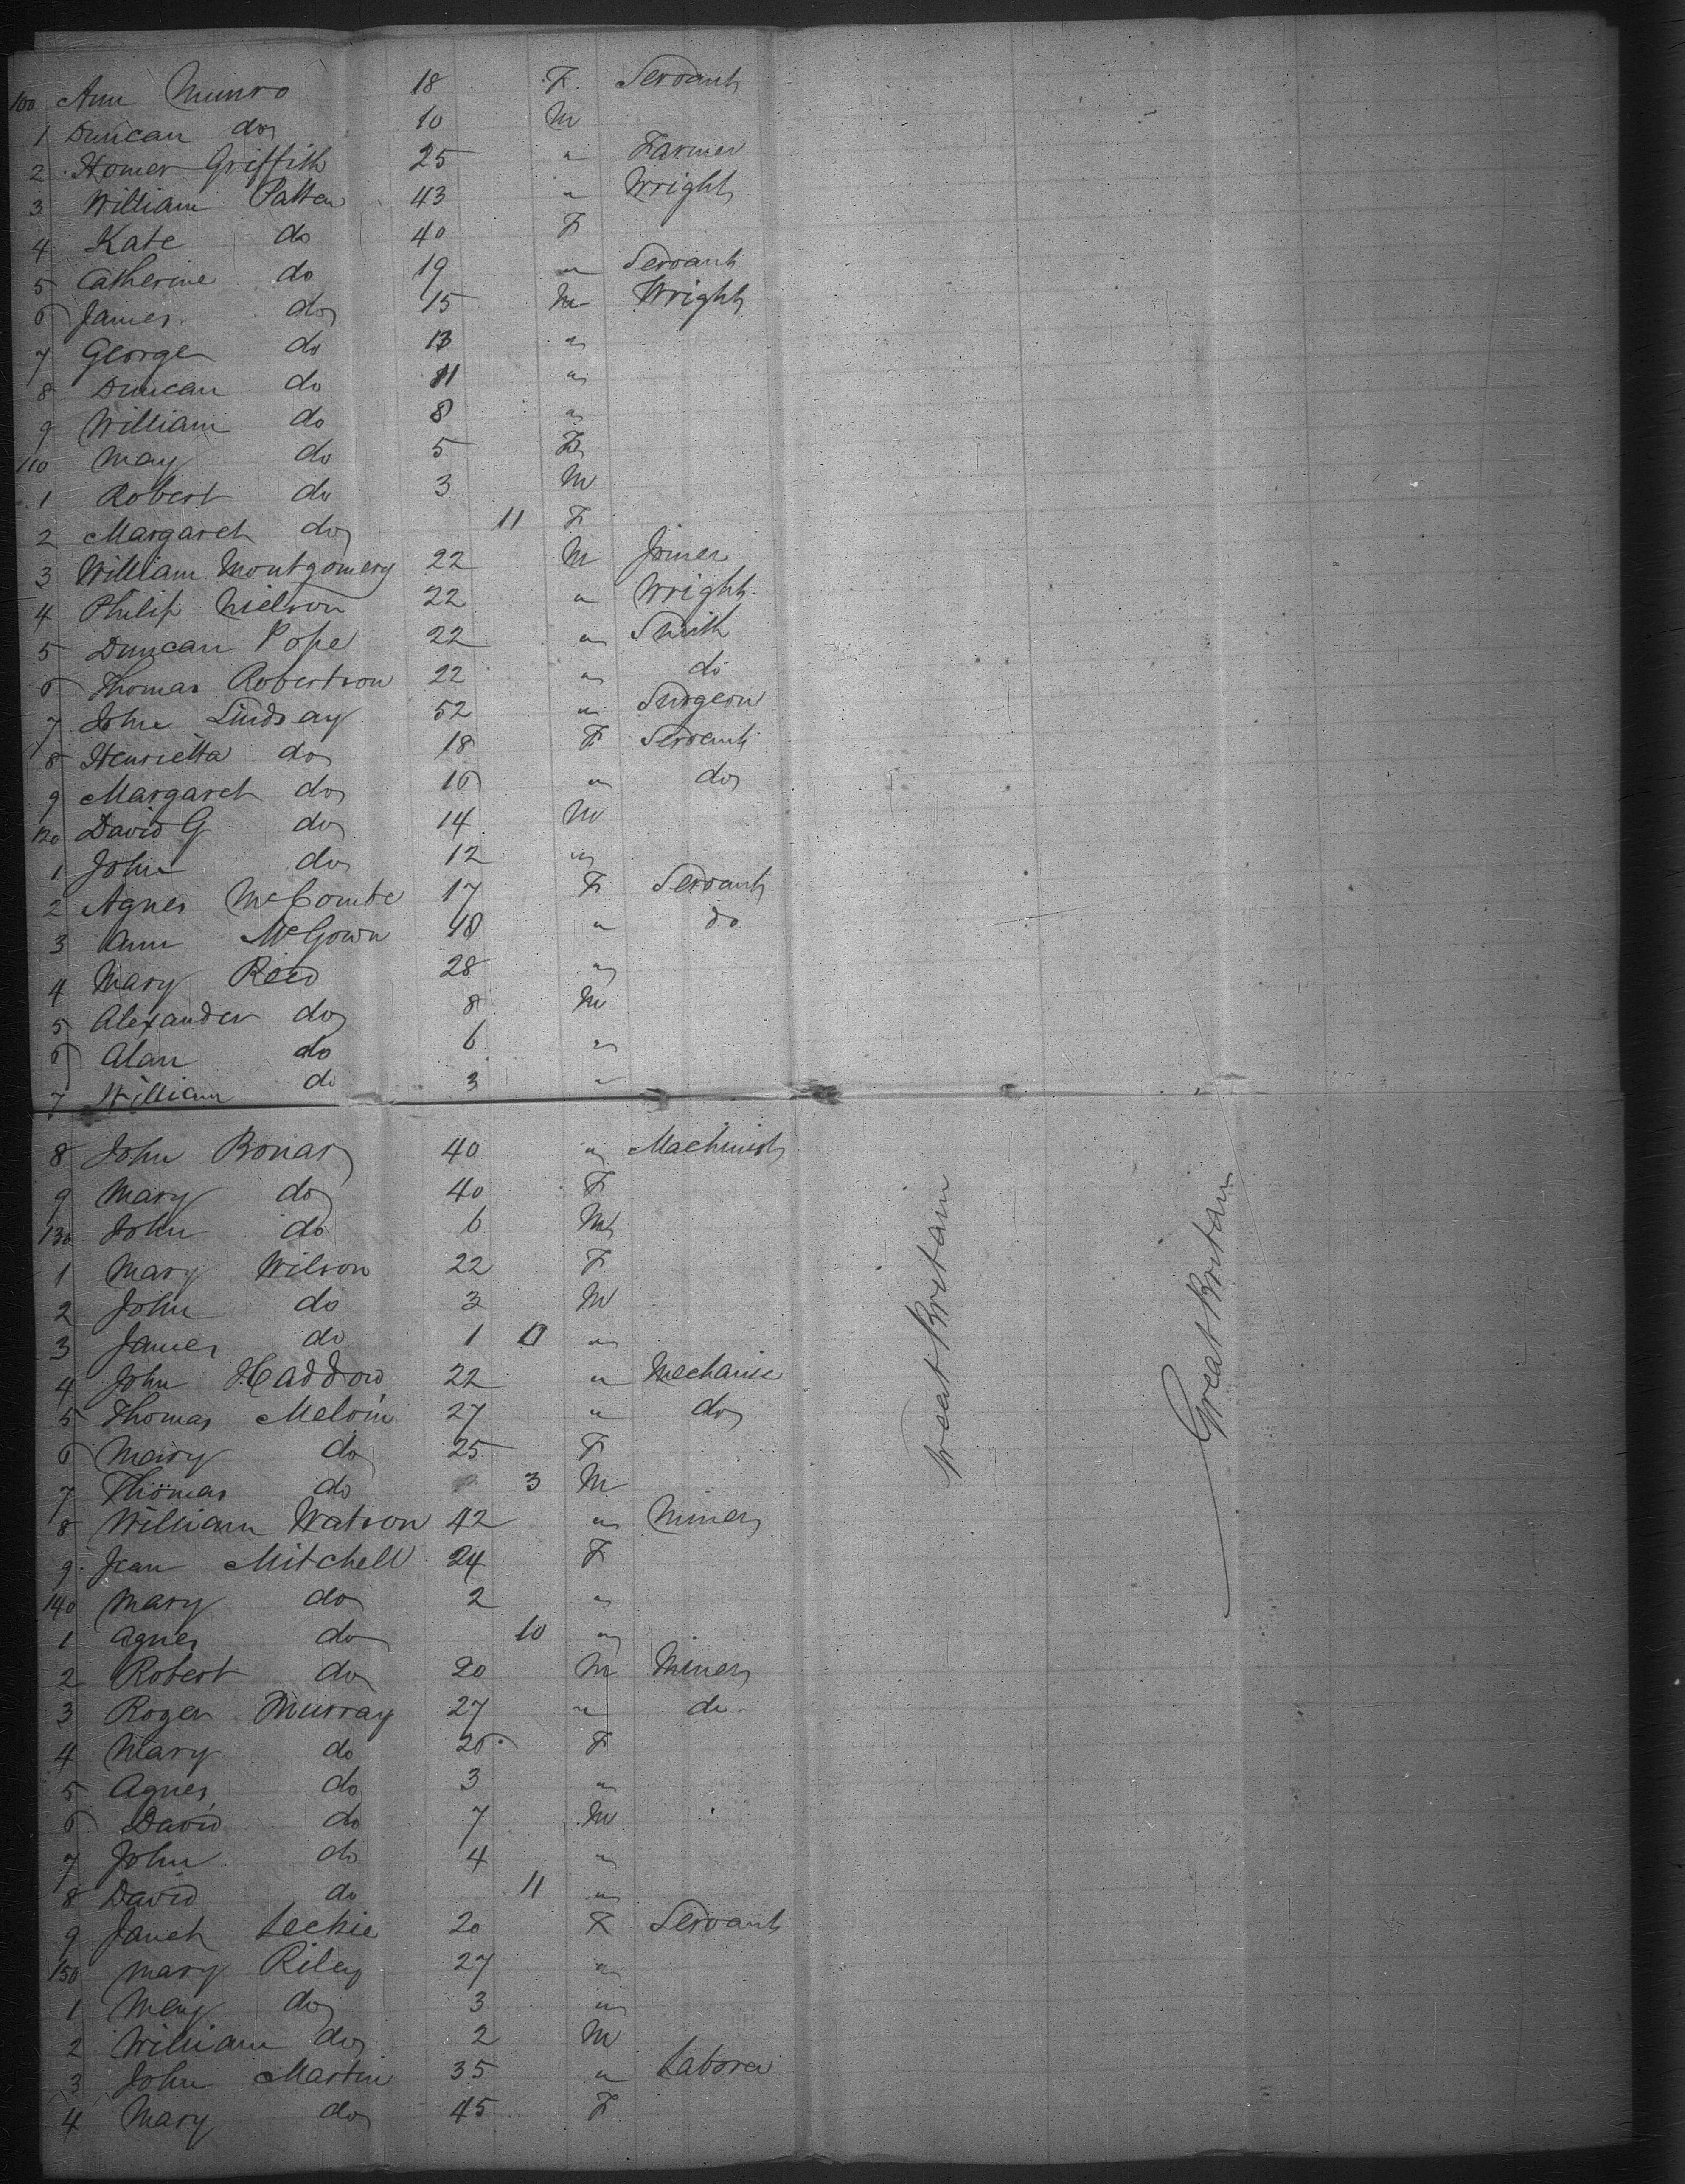 100 Ann Munro 18 F. Servant
1 Duncan do 10 M
2 Homer Griffith 25 " Farmer
3 William Patten 43 " Wright
4 Kate do 40 F
5 Catherine do 19 " Servant
6 James do 15 M Wright
7 George do 13 "
8 Duncan do 11 "
9 William do 8 "
110 May do 5 F
1 Robert do 3 M
2 Margaret do 11 F
3 William Montgomery 22 M Joiner
4 Philip Nielson 22 " Wright
5 Duncan Pope 22 " Smith
6 Thomas Robertson 22 " do
7 John Lindsay 52 " Surgeon
8 Henrietta do 18 F Servant
9 Margaret do 16 " do
120 David G do 14 M
1 John do 12 "
2 Agnes McCombe 17 F Servant
3 Ann McGown 18 " do
4 Mary Reid 28 "
5 Alexander do 8 M
6 Alan do 6 "
7 William do 3 "
8 John Bonar 40 " Machinist
9 Mary do 40 F
130 John do 6 M
1 Mary Wilson 22 F
2 John do 3 M
3 James do 1 "
4 John Haddow 22 " Mechanic
5 Thomas Melvin 27 " do
6 Mary do 25 F
7 Thomas do 3 M
8 William Watson 42 " Miner
9 Jean Mitchell 24 F
140 Mary do 2 "
1 Agnes do 10 "
2 Robert do 20 M Miner
3 Roger Murray 27 " do
4 Mary do 26 F
5 Agnes do 3 "
6 David do 7 M
7 John do 4 "
8 David do 11 "
9 Janet Leckie 20 F Servant
150 Mary Riley 27 "
1 Mary do 3 "
2 William do 2 M
3 John Martin 35 " Laborer
4 Mary do 45 F
Great Britain
Great Britain